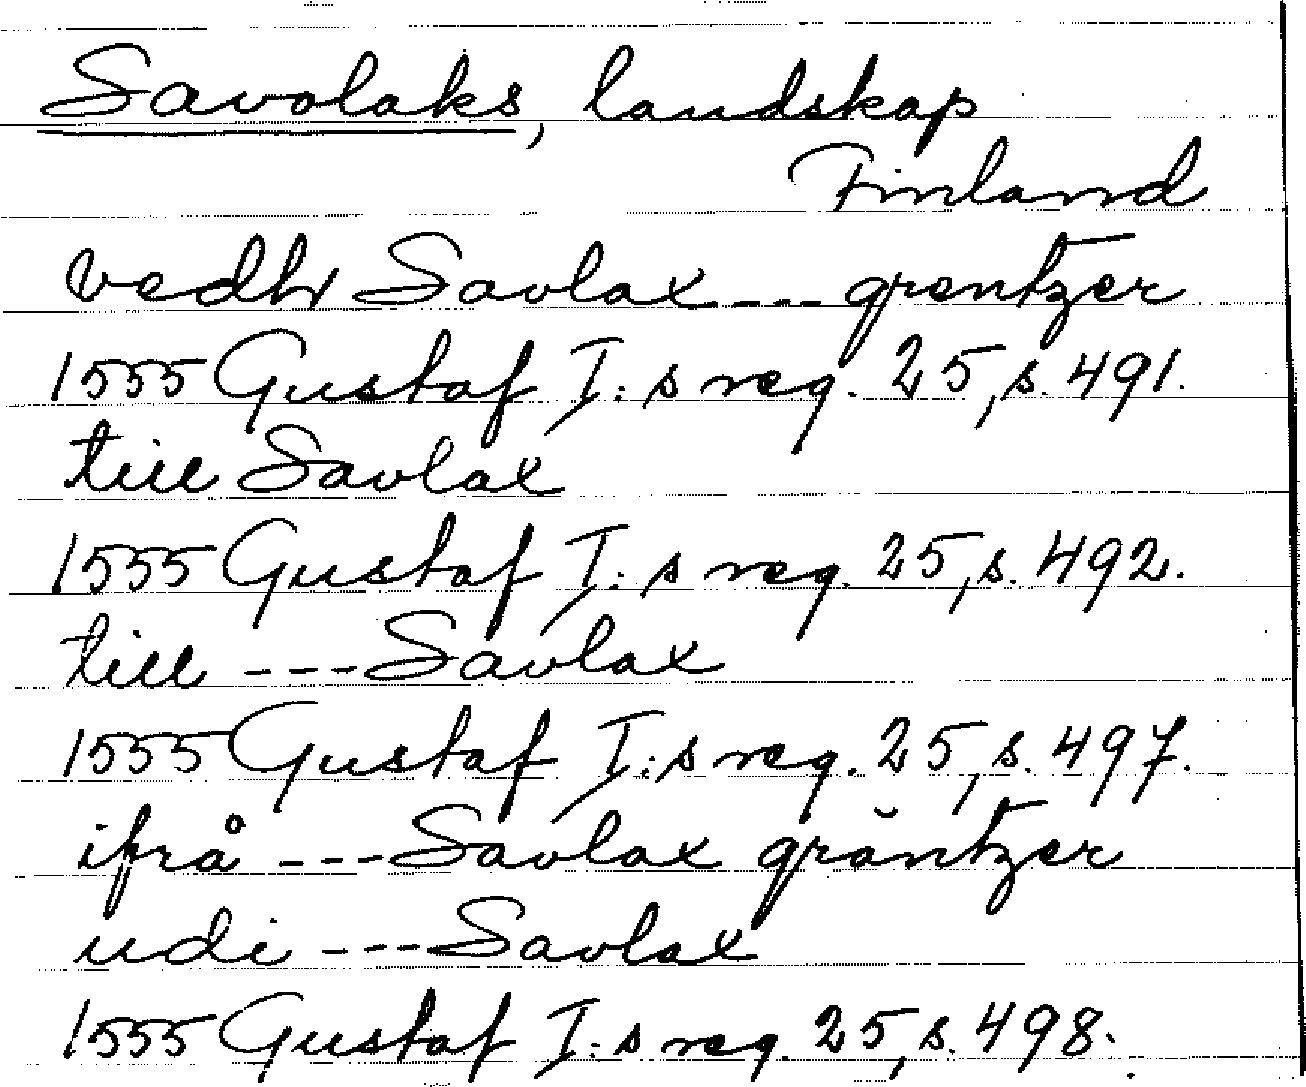 Savolaks, landskap
Finland
vedh Savlax --- grentzer
1555 Gustaf I:s reg. 25, s. 491.
till Savlax
1555 Gustaf I:s reg. 25, s. 492.
till --- Savlax
1555 Gustaf I:s reg. 25, s. 497.
ifrå --- Savlax gräntzer
udi --- Savlax
1555 Gustaf I:s reg. 25, s. 498.